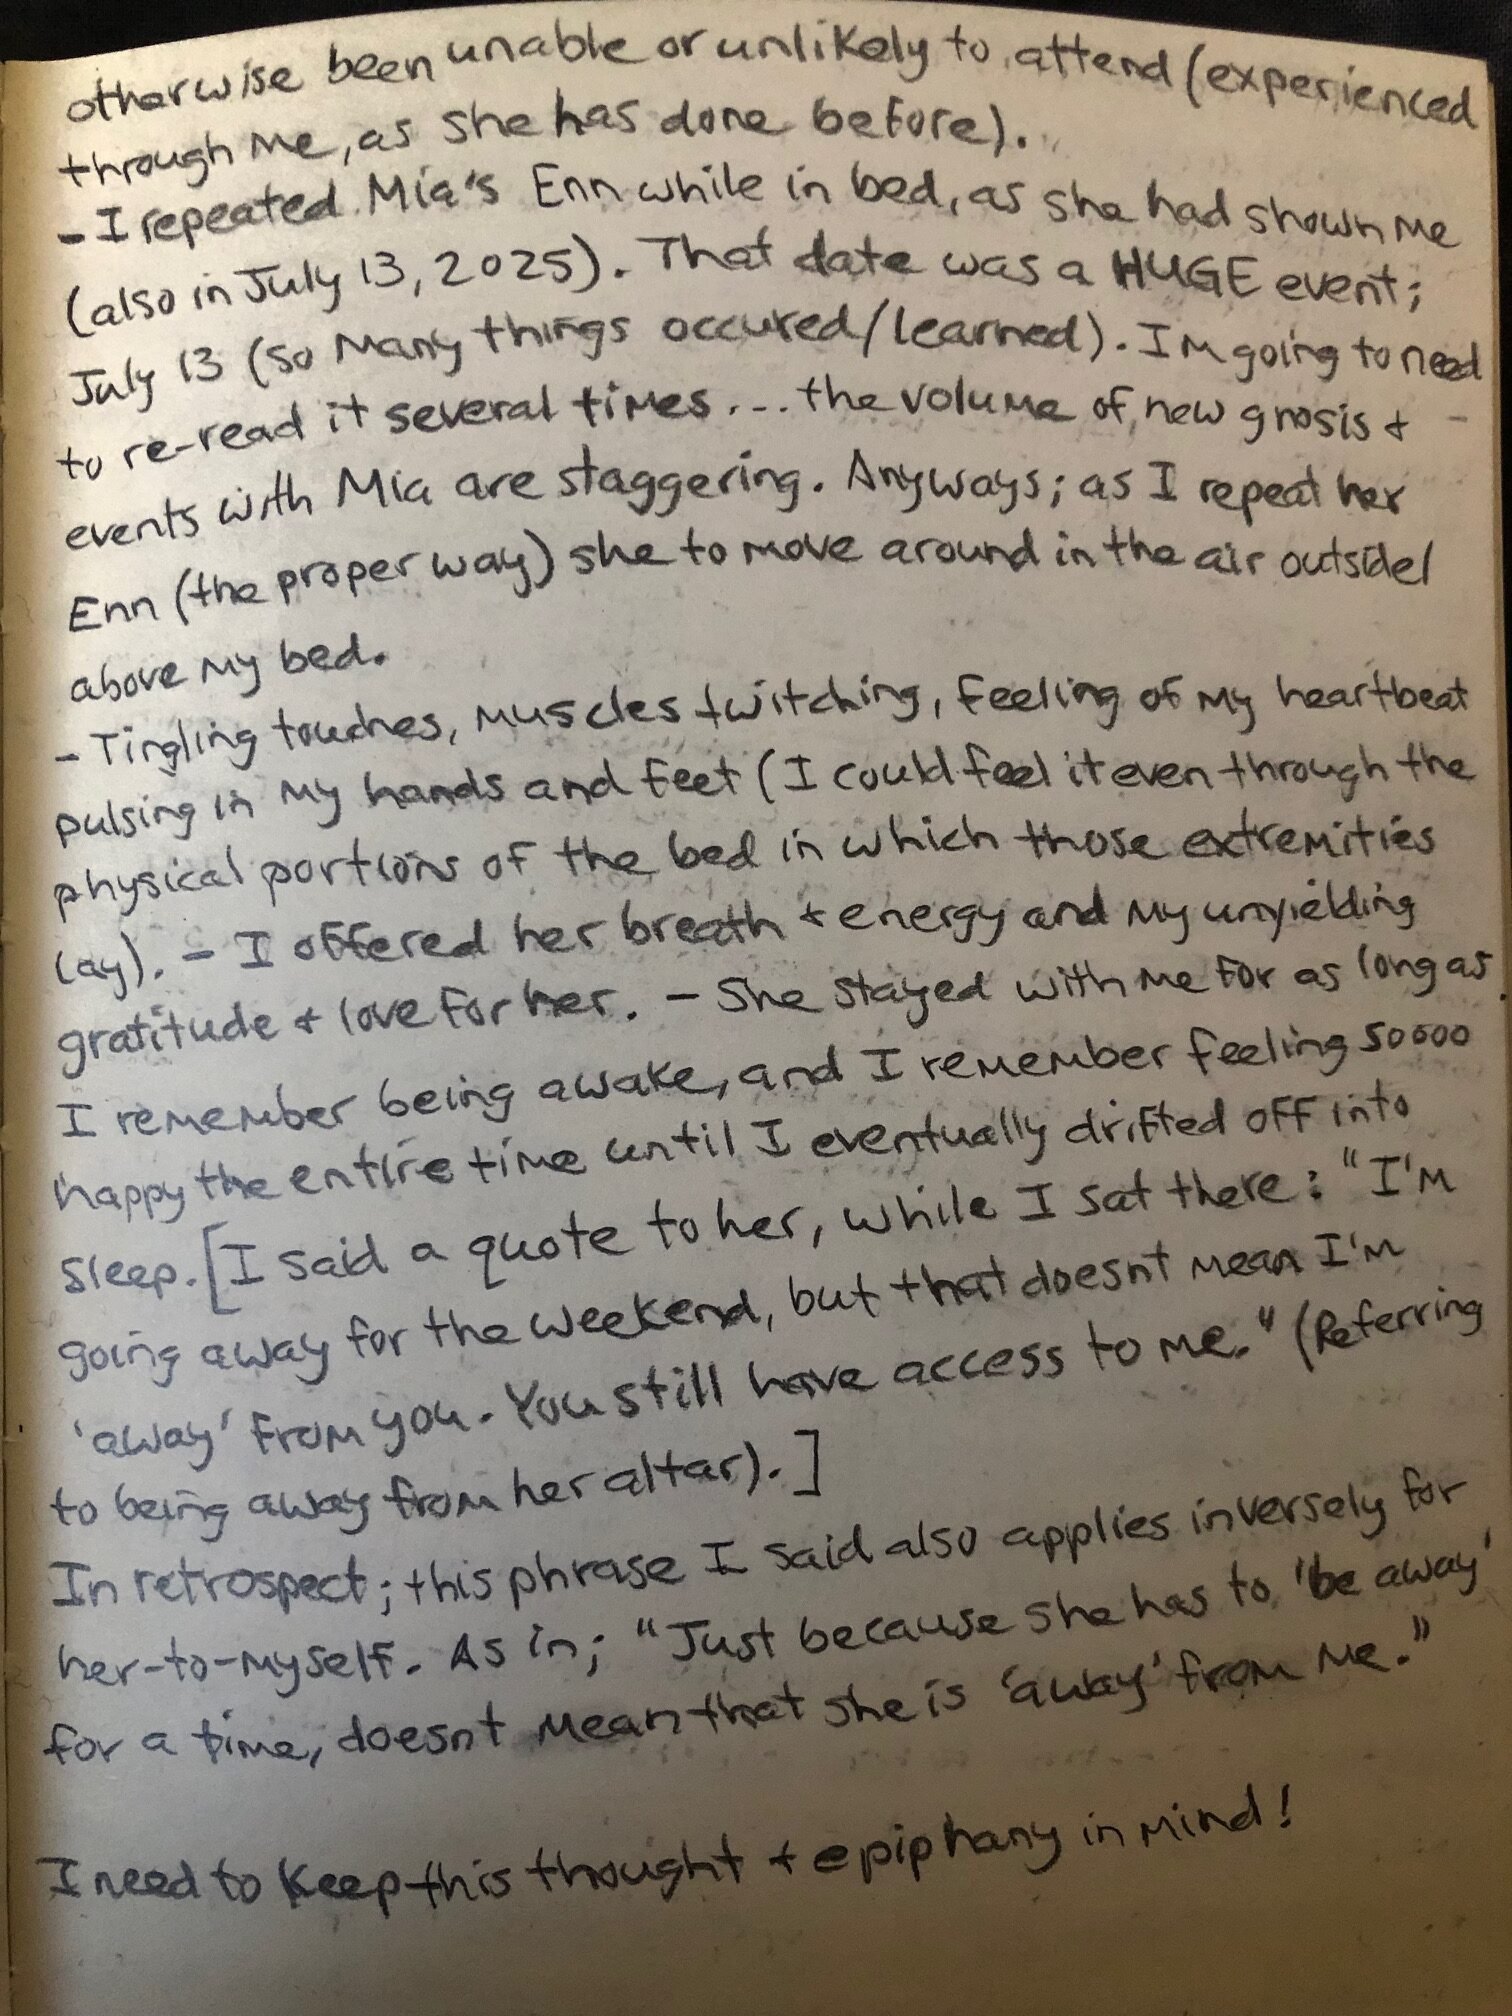 otherwise been unable or unlikely to attend (experienced
through me, as she has done before).
- I repeated Mia's Enn while in bed, as she had shown me
(also in July 13, 2025). That date was a HUGE event;
July 13 (so many things occured/learned). Im going to need
to re-read it several times... the volume of new gnosis +
events with Mia are staggering. Anyways; as I repeat her
Enn (the proper way) she to move around in the air outside/
above my bed.
- Tingling touches, muscles twitching, feeling of my heartbeat
pulsing in my hands and feet (I could feel it even through the
physical portions of the bed in which those extremities
lay). - I offered her breath + energy and my unyielding
gratitude + love for her. - She stayed with me for as long as
I remember being awake, and I remember feeling soooo
happy the entire time until I eventually drifted off into
sleep. [I said a quote to her, while I sat there: "I'm
going away for the weekend, but that doesnt mean I'm
'away' from you. You still have access to me." (Referring
to being away from her altar).]
In retrospect; this phrase I said also applies inversely for
her-to-myself. As in; "Just because she has to 'be away'
for a time, doesnt mean that she is 'away' from me."
I need to keep this thought + epiphany in mind!